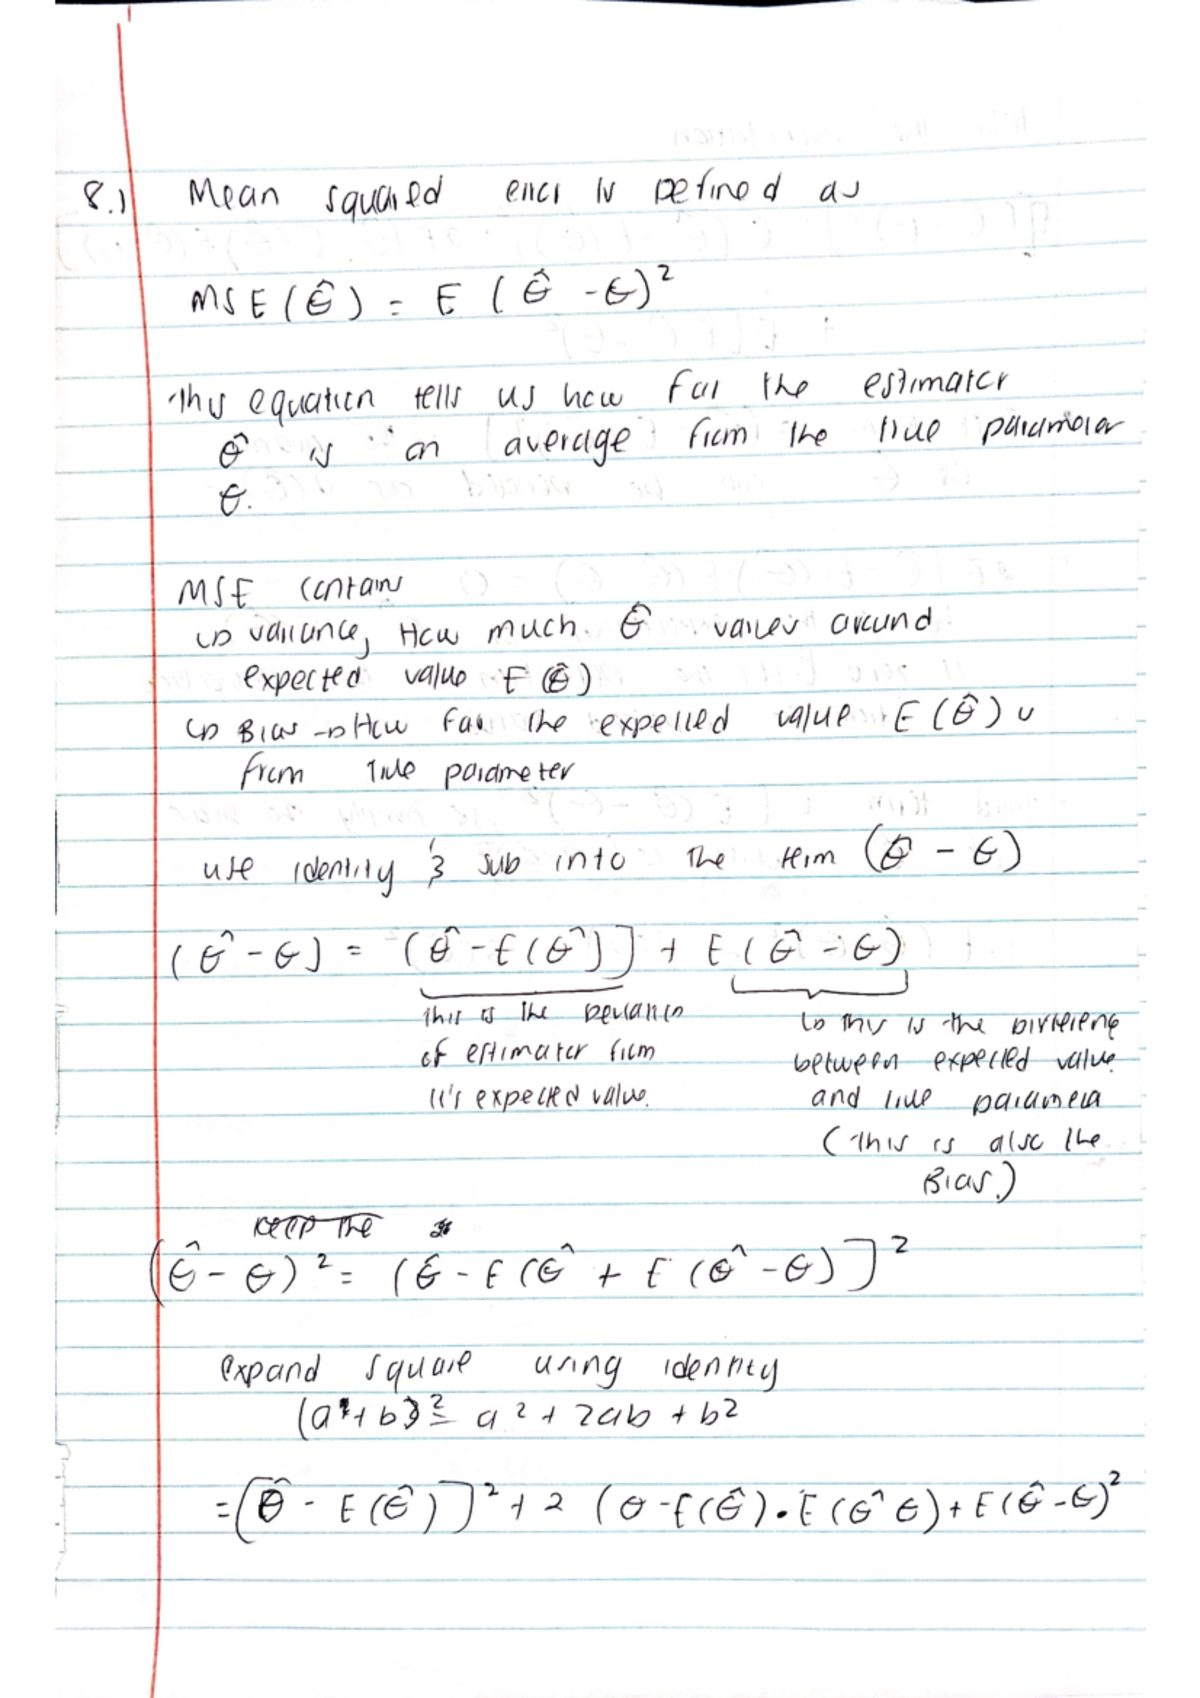 8.1 Mean squared error is defined as
MSE(θ̂) = E (θ̂ - θ)²
This equation tells us how far the estimator
θ̂ is on average from the true parameter
θ.
MSE contains
↳ variance, How much θ̂ varies around
expected value E(θ̂)
↳ Bias → How far the expected value E(θ̂) is
from true parameter
use identity & sub into the term (θ̂ - θ)
(θ̂ - θ) = (θ̂ - E(θ̂)] + E(θ̂ - θ)
This is the
of estimator from
it's expected value.
↳ This is the difference
between expected value
and true
(This is also the
Bias.)
keep the
(θ̂ - θ)² = (θ̂ - E(θ̂ + E(θ̂ - θ)]²
expand square using identity
(a + b)² = a² + 2ab + b²
= [θ̂ - E(θ̂)]² + 2 (θ - E(θ̂) · E(θ̂ θ) + E(θ̂ - θ)²